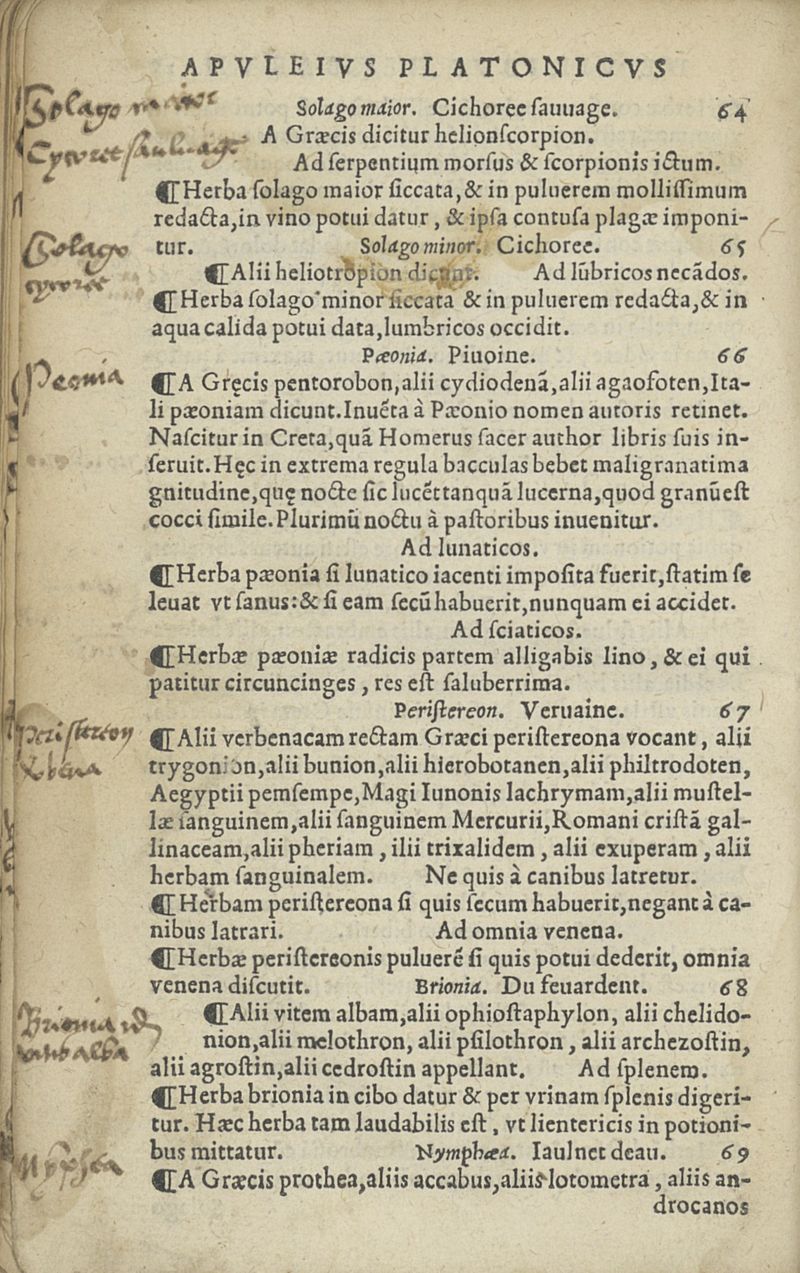 APVLEIVS PLATONICVS
Solago maior. Cichoree sauuage. 64
A Græcis dicitur helionſcorpion.
Ad ſerpentium morſus & ſcorpionis ictum.
¶Herba ſolago maior ſiccata, & in puluerem molliſſimum
redacta, in vino potui datur, & ipſa contuſa plagæ imponi-
tur. Solago minor. Cichoree. 65
¶Alii heliotropion dicunt. Ad lũbricos necãdos.
¶Herba ſolago minor ſiccata & in puluerem redacta, & in
aqua calida potui data, lumbricos occidit.
Pæonia. Piuoine. 66
¶A Gręcis pentorobon, alii cydiodenã, alii agaofoten, Ita-
li pæoniam dicunt. Inuẽta à Pæonio nomen autoris retinet.
Naſcitur in Creta, quã Homerus ſacer author libris ſuis in-
ſeruit. Hęc in extrema regula bacculas bebet maligranatima
gnitudine, quę nocte ſic lucẽt tanquã lucerna, quod granũ eſt
cocci ſimile. Plurimũ noctu à paſtoribus inuenitur.
Ad lunaticos.
¶Herba pæonia ſi lunatico iacenti impoſita fuerit, ſtatim ſe
leuat vt ſanus: & ſi eam ſecũ habuerit, nunquam ei accidet.
Ad ſciaticos.
¶Herbæ pæoniæ radicis partem alligabis lino, & ei qui
patitur circuncinges, res eſt ſaluberrima.
Periſtereon. Veruaine. 67
¶Alii verbenacam rectam Græci periſtereona vocant, alii
trygonion, alii bunion, alii hierobotanen, alii philtrodoten,
Aegyptii pemſempe, Magi Iunonis lachrymam, alii muſtel-
læ ſanguinem, alii ſanguinem Mercurii, Romani criſtã gal-
linaceam, alii pheriam, ilii trixalidem, alii exuperam, alii
herbam ſanguinalem. Ne quis à canibus latretur.
¶Herbam periſtereona ſi quis ſecum habuerit, negant à ca-
nibus latrari. Ad omnia venena.
¶Herbæ periſtereonis puluerẽ ſi quis potui dederit, omnia
venena diſcutit. Brionia. Du feuardent. 68
¶Alii vitem albam, alii ophioſtaphylon, alii chelido-
nion, alii melothron, alii pſilothron, alii archezoſtin,
alii agroſtin, alii cedroſtin appellant. Ad ſplenem.
¶Herba brionia in cibo datur & per vrinam ſplenis digeri-
tur. Hæc herba tam laudabilis eſt, vt lientericis in potioni-
bus mittatur. Nymphæa. Iaulnet deau. 69
¶A Græcis prothea, aliis accabus, aliis lotometra, aliis an-
drocanos
Solago maior
Solago
Peonia
Peristereon
Brionia